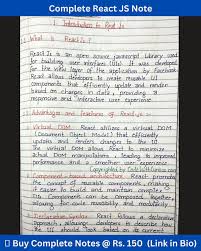 Complete React JS Note
1. Introduction to React Js
1.1 What is React Js?
React Js is an open source javascript library used
for building user interfaces (UIs). It was developed
for the view layer of the application by Facebook
React allows developers to create reusable UI
components that efficiently update and render
based on changes in data, providing a
responsive and interactive user experience
1.2 Advantages and features of React js :-
1. Virtual DOM : React utilizes a virtual DOM
(Document Object Model) that efficiently
updates and renders changes to the UI
The virtual DOM allows React to minimize
actual DOM manipulations, leading to improved
performance and a smoother user experience
Copyrighted by CodeWithCurious.com
2. Component-based architecture: React promotes
the concept of reusable components, making
it easier to build and maintain complex
UIs Components can be composed together,
allowing for code reusability and modularity
3. Declarative syntax : React follows a declarative
approach, where developers to describe how
the UI should look based on its current
Buy Complete Notes @ Rs. 150 (Link in Bio)